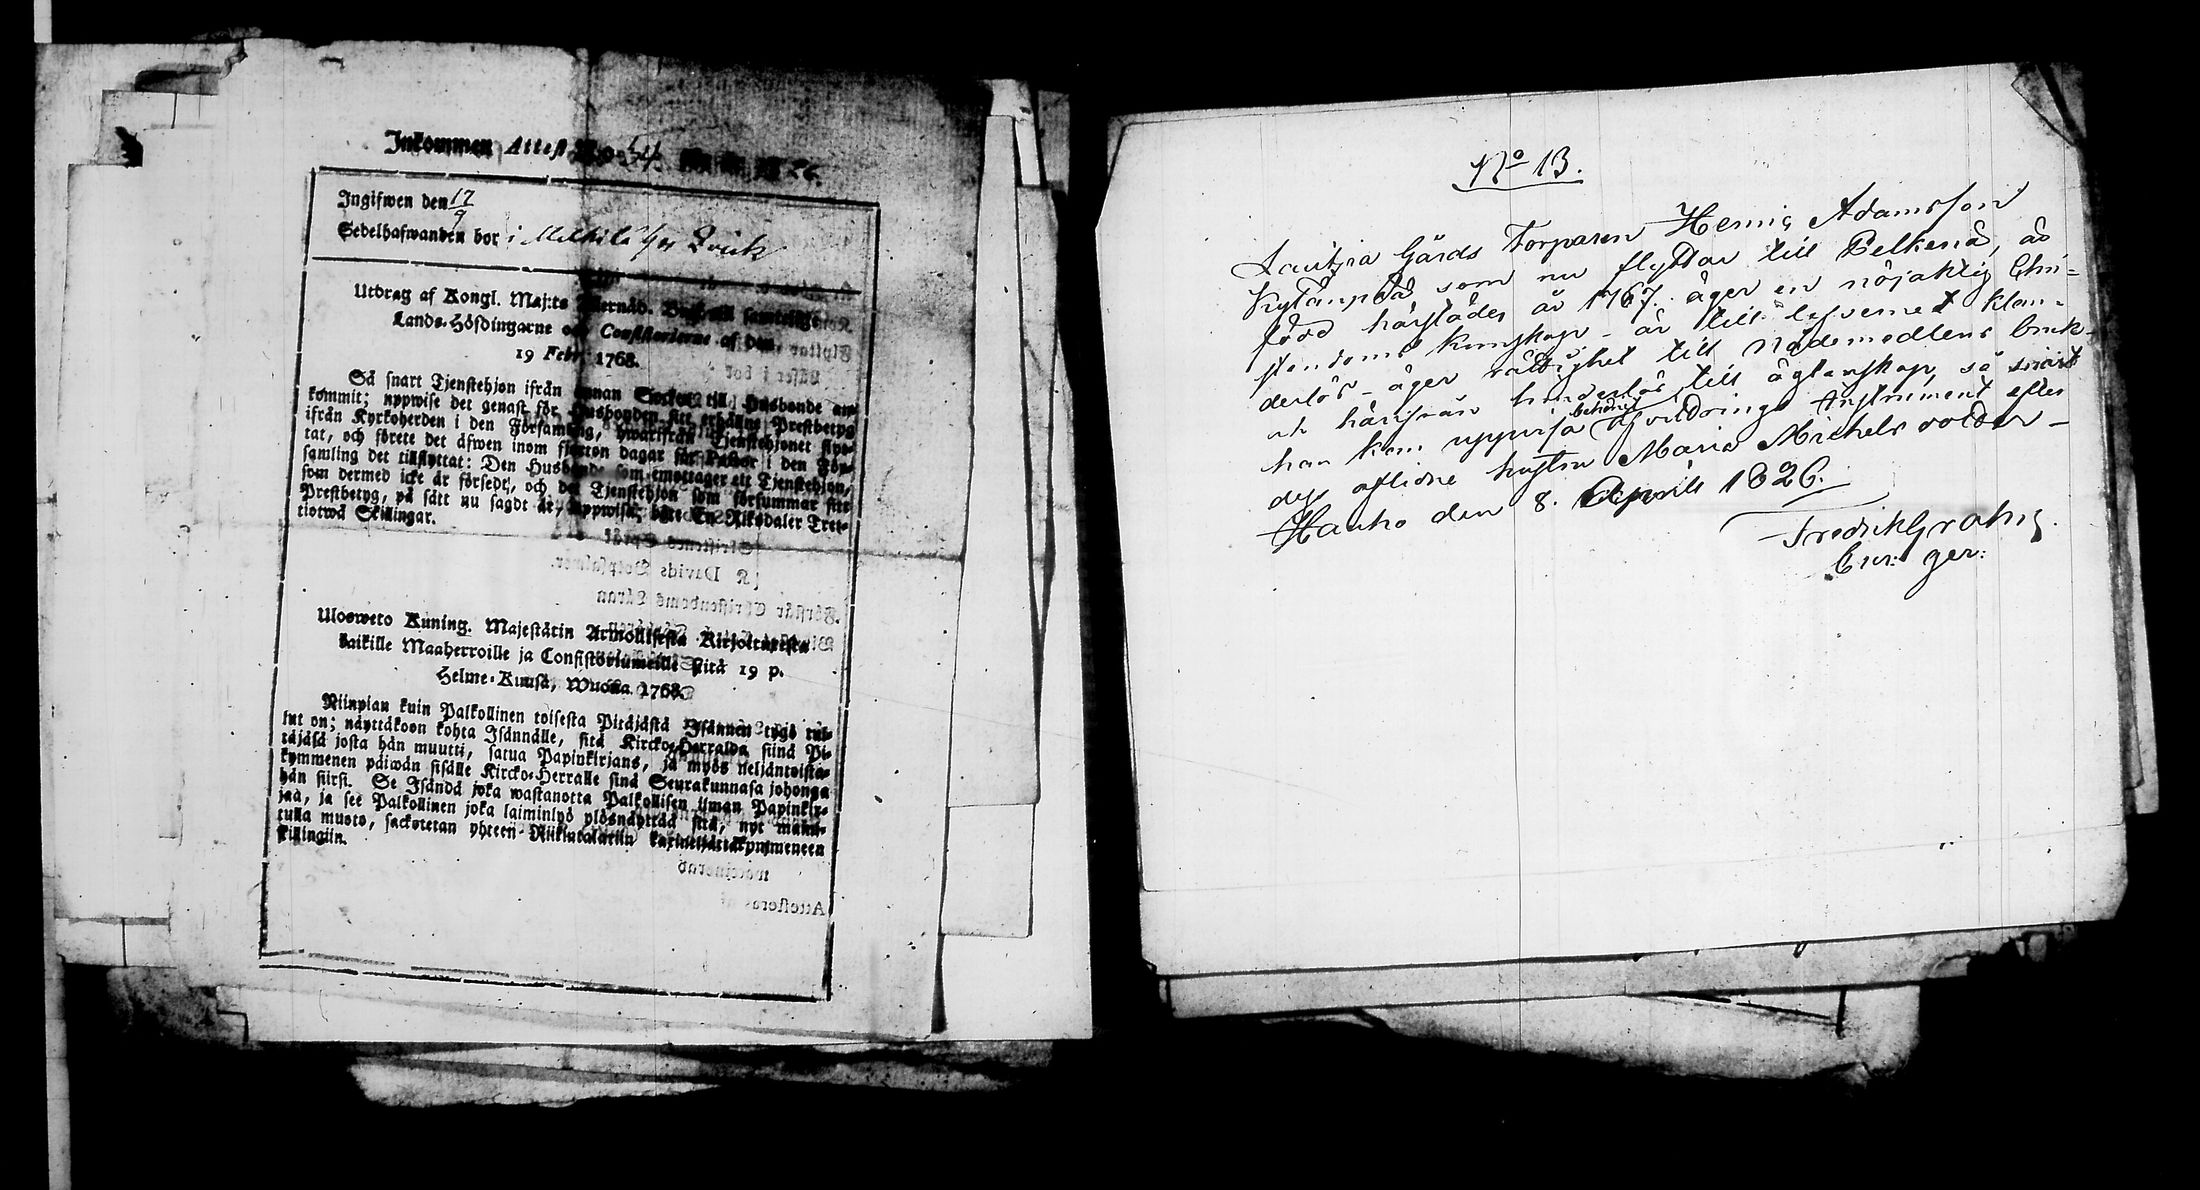 Inkommen Attest N:o 54. 26.
Ingifwen den 17/9
Sedelhafwanden bor i
Utdrag af Kongl. Maj:ts
Lands-Höfdingarne och Consistorierne af den
19 Febr. 1768.
Så snart Tjenstehjon ifrån annan Socken til Husbonde an-
kommit; uppwise det genast för Husbonden sit erhållne Prestbetyg
ifrån Kyrkoherden i den Församling, hwarifrån Tjenstehjonet flyt-
tat, och förete det äfwen inom fjorton dagar för Pastor i den För-
samling det tilflyttat: Den Husbonde som emottager ett Tjenstehjon,
som dermed icke är försedt, och det Tjenstehjon som försummar sitt
Prestbetyg, på sätt nu sagdt är, uppwisa, böte En Riksdaler Tret-
tiotwå Skillingar.
Ulosweto Kuning. Majestätin Armollisesta Kirjoituxesta
kaikille Maaherroille ja Consistoriumeille sitä 19 p.
Helme-Kuusa, Wuonna 1768.
Niinpian kuin Palkollinen toisesta Pitäjästä Isännän tygö tul-
lut on; näyttäköön kohta Isännälle, sitä Kircko-Herralda siinä Pi-
täjäsä josta hän muutti, saatua Papinkirjans, ja myös neljäntoista-
kymmenen päiwän sisälle Kircko-Herralle siinä Seurakunnasa johonga
hän siirsi. Se Isändä joka wastanotta Palkollisen ilman Papinkir-
jaa, ja see Palkollinen joka laiminlyö ylösnäyttää sitä, nyt maini-
tulla muoto, sackotetan yhteen Riikintalariin kaxineljättäkymmeneen
killingiin.
N:o 13.
Lautsia Gårds Torparen Hemig Adamsson
som nu flyttar till Pelkene, är
född härstädes år 1767. äger en nöjaktig Chri-
stendoms kunskap – är till lefvernet klan-
derlös – äger rättighet till Nådemedlens bruk
och härifrån hinderlös till ägtenskap, så snart
han kan uppvisa behörigt Afvittrings Instrument efter
dess aflidne hustru Maria Michelsdotter –
Hauho den 8. Aprill 1826.
Fredrik Grahn